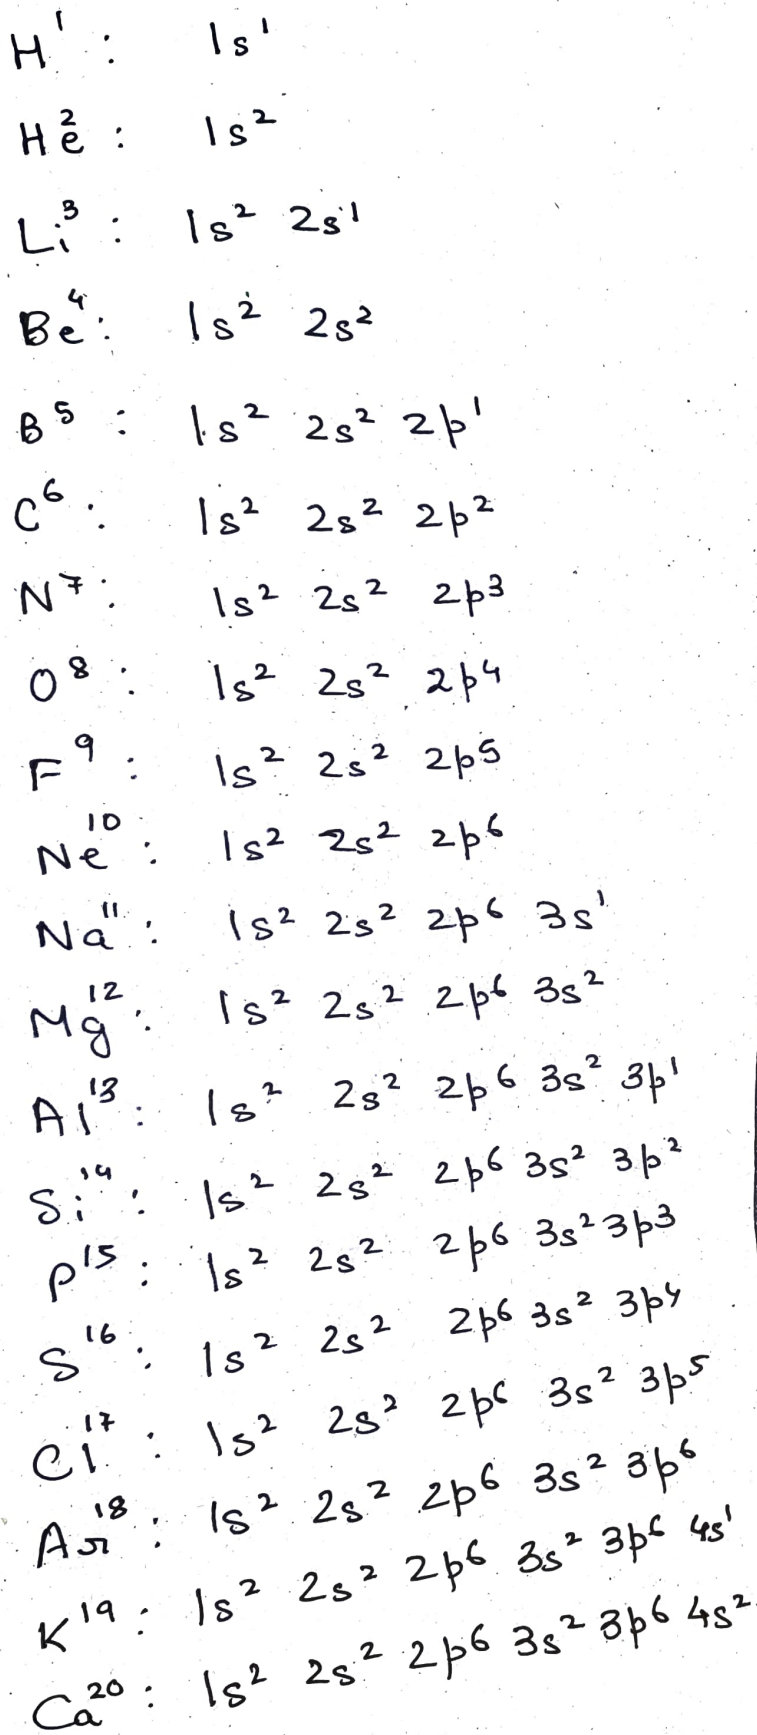 H¹ : 1s¹
He² : 1s²
Li³ : 1s² 2s¹
Be⁴ : 1s² 2s²
B⁵ : 1s² 2s² 2p¹
C⁶ : 1s² 2s² 2p²
N⁷ : 1s² 2s² 2p³
O⁸ : 1s² 2s² 2p⁴
F⁹ : 1s² 2s² 2p⁵
Ne¹⁰ : 1s² 2s² 2p⁶
Na¹¹ : 1s² 2s² 2p⁶ 3s¹
Mg¹² : 1s² 2s² 2p⁶ 3s²
Al¹³ : 1s² 2s² 2p⁶ 3s² 3p¹
Si¹⁴ : 1s² 2s² 2p⁶ 3s² 3p²
P¹⁵ : 1s² 2s² 2p⁶ 3s² 3p³
S¹⁶ : 1s² 2s² 2p⁶ 3s² 3p⁴
Cl¹⁷ : 1s² 2s² 2p⁶ 3s² 3p⁵
Ar¹⁸ : 1s² 2s² 2p⁶ 3s² 3p⁶
K¹⁹ : 1s² 2s² 2p⁶ 3s² 3p⁶ 4s¹
Ca²⁰ : 1s² 2s² 2p⁶ 3s² 3p⁶ 4s²